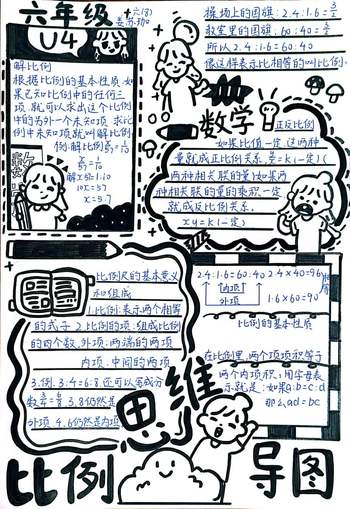 六年级
U4
六(3)
操场上的国旗:2.4:1.6=3/2
教室里的国旗,60:40=3/2
所以2.4:1.6=60:40
像这样表示比相等的叫比例.
解比例
根据比例的基本性质,如
果已知比例中的任何三
项,就可以求出这个比例
中的另外一个未知项 求比
例中未知项就叫解比例
例:解比例
数学
正反比例
如果比值一定,这两种
量就成正比例关系.
两种相关联的量)如果两
种相关联的量的乘积一定
就成反比例关系.
xy=k(一定)
比例尺的基本意义
和组成
1.比例:表示两个相等
的式子 2.比例的项:组成比例
的四个数,外项:两端的两项
内项:中间的两项
3.例:3:4=6:8,还可以写成分
外项 4.6仍然是内项
2.4:1.6=60:40
内项
外项
2.4×40=96
1.6×60=96
相等
比例的基本性质
在比例里,两个项项积等于
两个内项积:用字母表
示就是:如果a:b=c:d
那么,ad=bc
思维
比例
导图